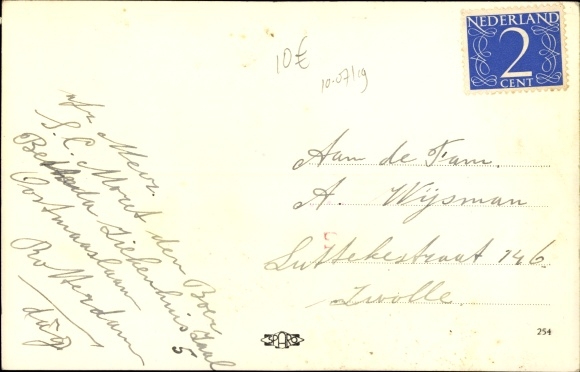 NEDERLAND
2
CENT
10€
10.07/19
Aan de Fam.
A. Wijsman
Luttekestraat 146
Zwolle.
Mevr.
S. C. Mout den Boer
Bethesda Ziekenhuis Zaal 5
Oostmaaslaan
Rotterdam
dag
SPARO
254